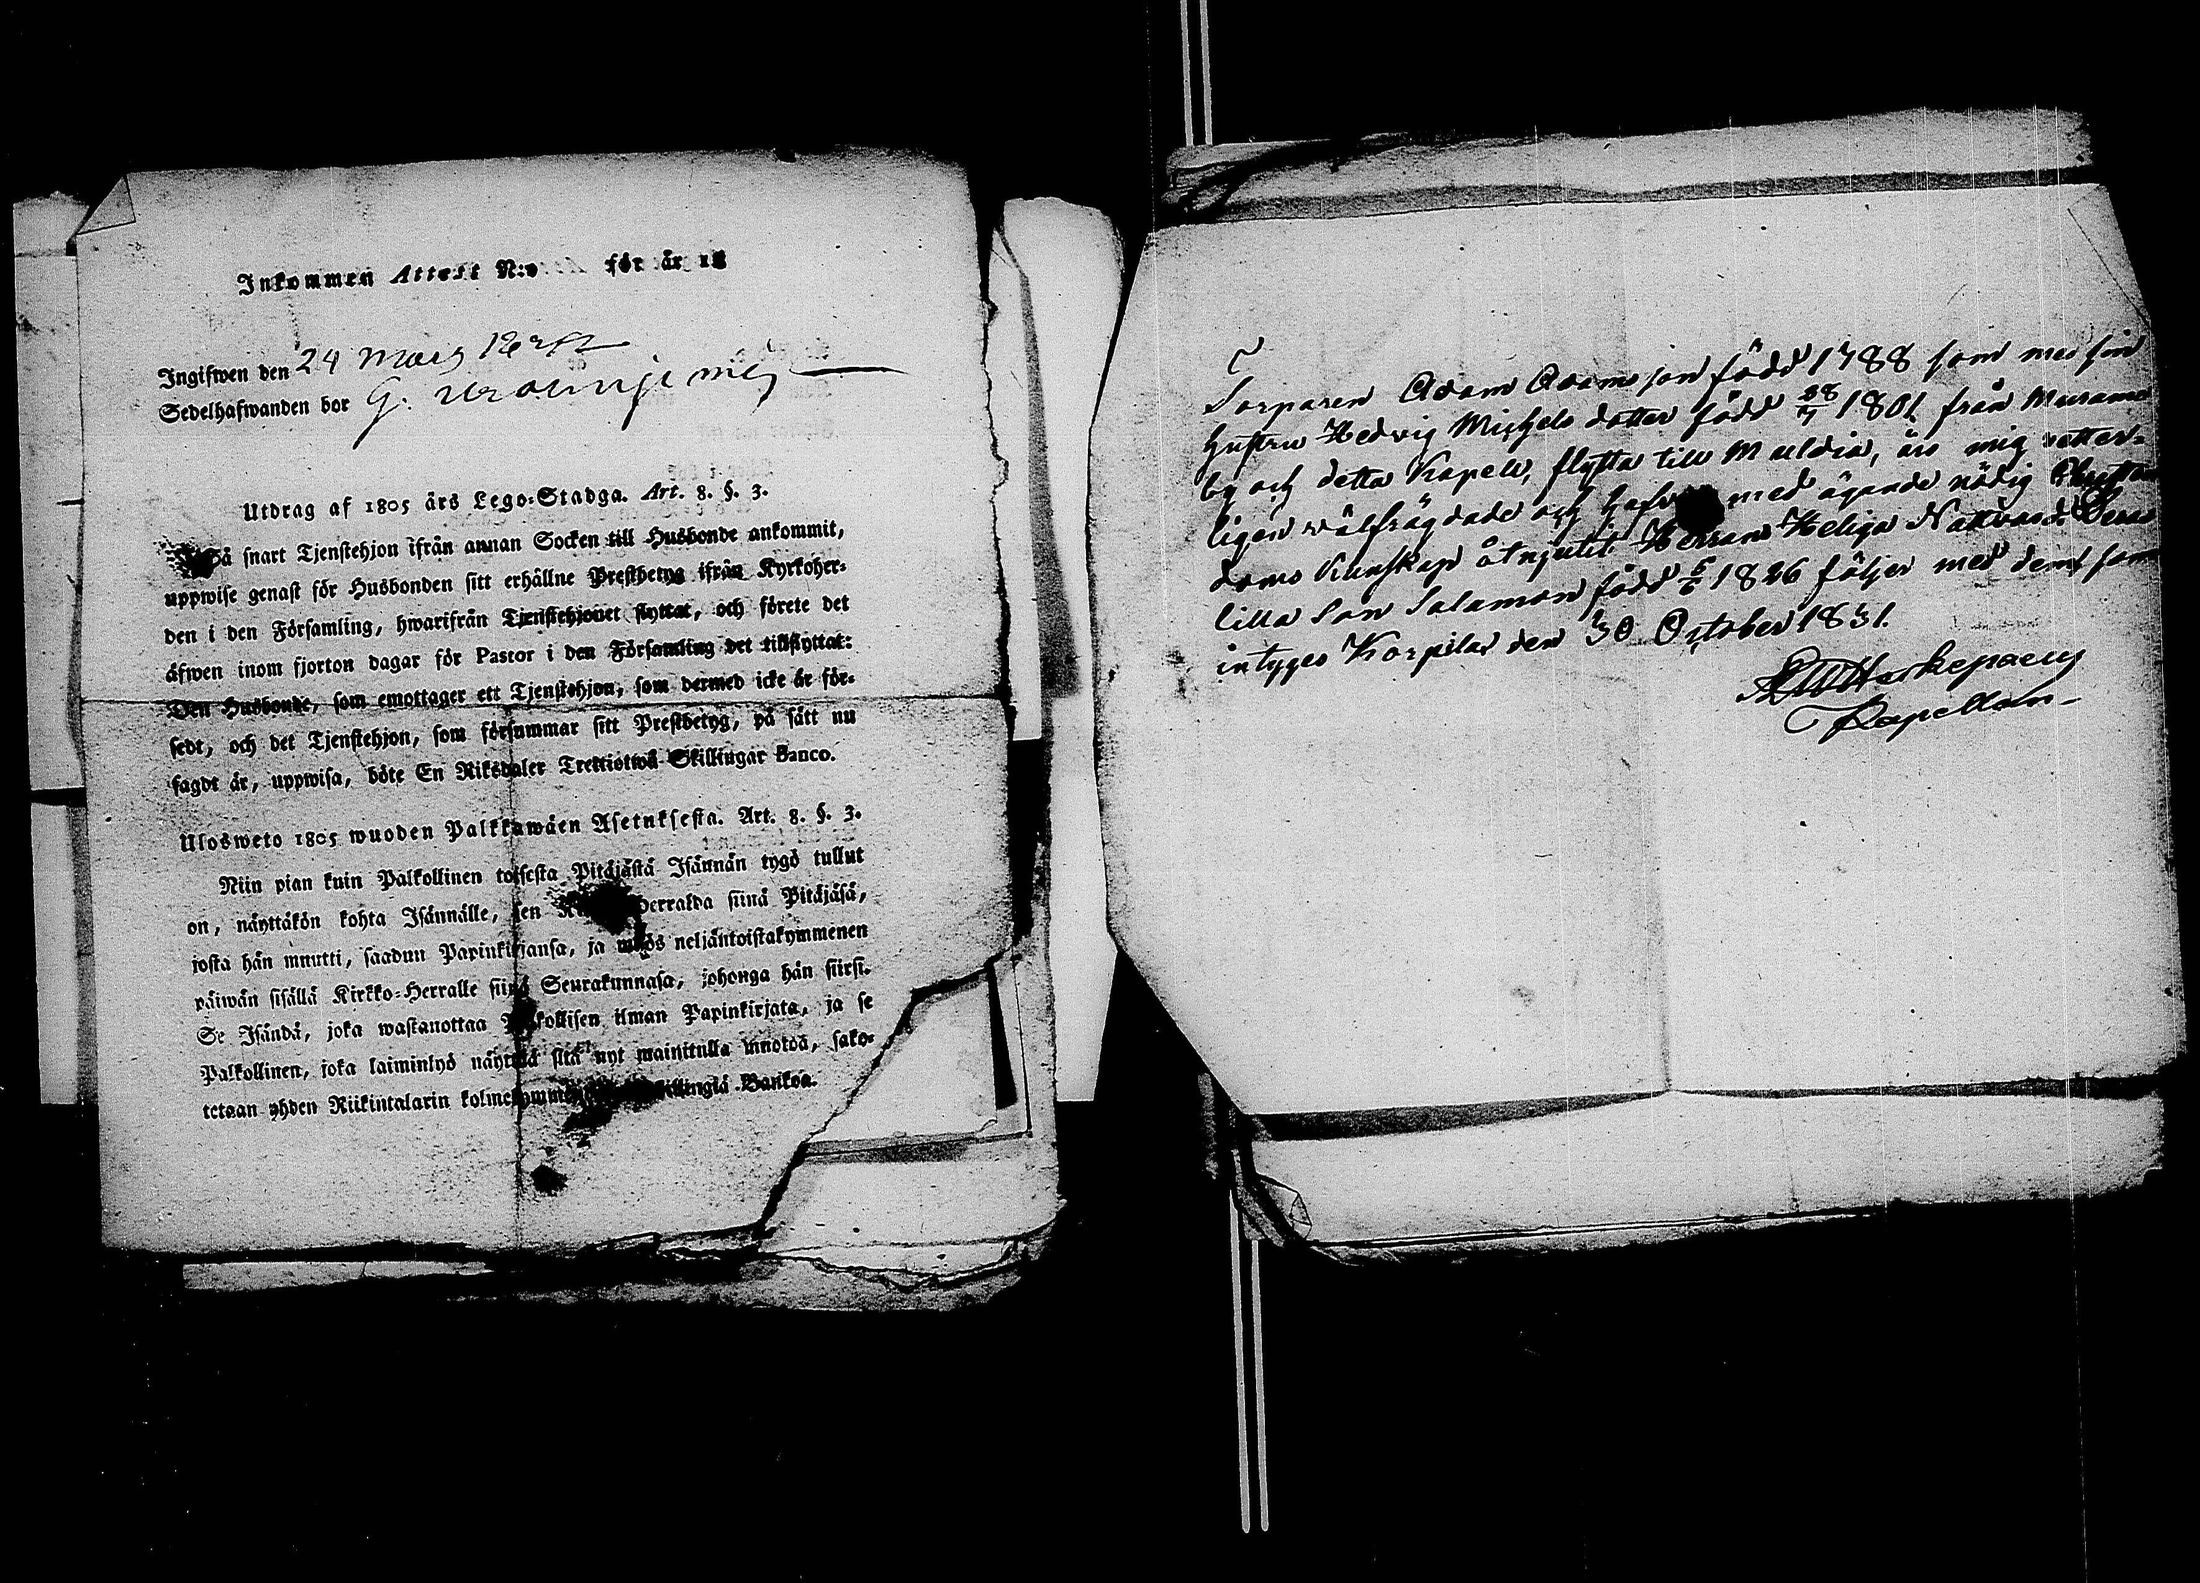 Inkommen Attest N:o för år 18
Ingifwen den 24 Mars
Sedelhafwanden bor G.
Utdrag af 1805 års Lego-Stadga. Art. 8. §. 3.
Så snart Tjenstehjon ifrån annan Socken till Husbonde ankommit,
uppwise genast för Husbonden sitt erhållne Prestbetyg ifrån Kyrkoher-
den i den Församling, hwarifrån Tjenstehjonet flyttat, och förete det
äfwen inom fjorton dagar för Pastor i den Församling det tillflyttat:
Den Husbonde, som emottager ett Tjenstehjon, som dermed icke är för-
sedt, och det Tjenstehjon, som försummar sitt Prestbetyg, på sätt nu
sagdt är, uppwisa, böte En Riksdaler Trettiotwå Skillingar Banco.
Ulosweto 1805 wuoden Palkkawäen Asetuksesta. Art. 8. §. 3.
Niin pian kuin Palkollinen toisesta Pitäjästä Isännän tygö tullut
on, näyttäkön kohta Isännälle, sen herralda siinä Pitäjäsä,
josta hän muutti, saadun Papinkirjansa, ja myös neljäntoistakymmenen
päiwän sisällä Kirkko-Herralle siinä Seurakunnasa, johonga hän siirsi.
Se Isändä, joka wastanottaa Palkollisen ilman Papinkirjata, ja se
Palkollinen, joka laiminlyö näyttää sitä nyt mainitulla muotoa, sako-
tetaan yhden Riikintalarin kolmekymmen Killingiä Bankoa.
Torparen Adam Adamsson född 1788 som med sin
hustru Hedvig Michels dotter född 28/7 1801 från Murama
by och detta Kapell, flytta till Mueldia, äro mig vetter-
ligen wälfrägdade och hafva med ägande nödig Christen
doms Kunskap åtnjutit Herrans Heliga Nattvard. Deras
lilla Son Salamon född 5/6 1826 följer med dem, som
intyges Korpilax den 30 October 1831.
Kapellan